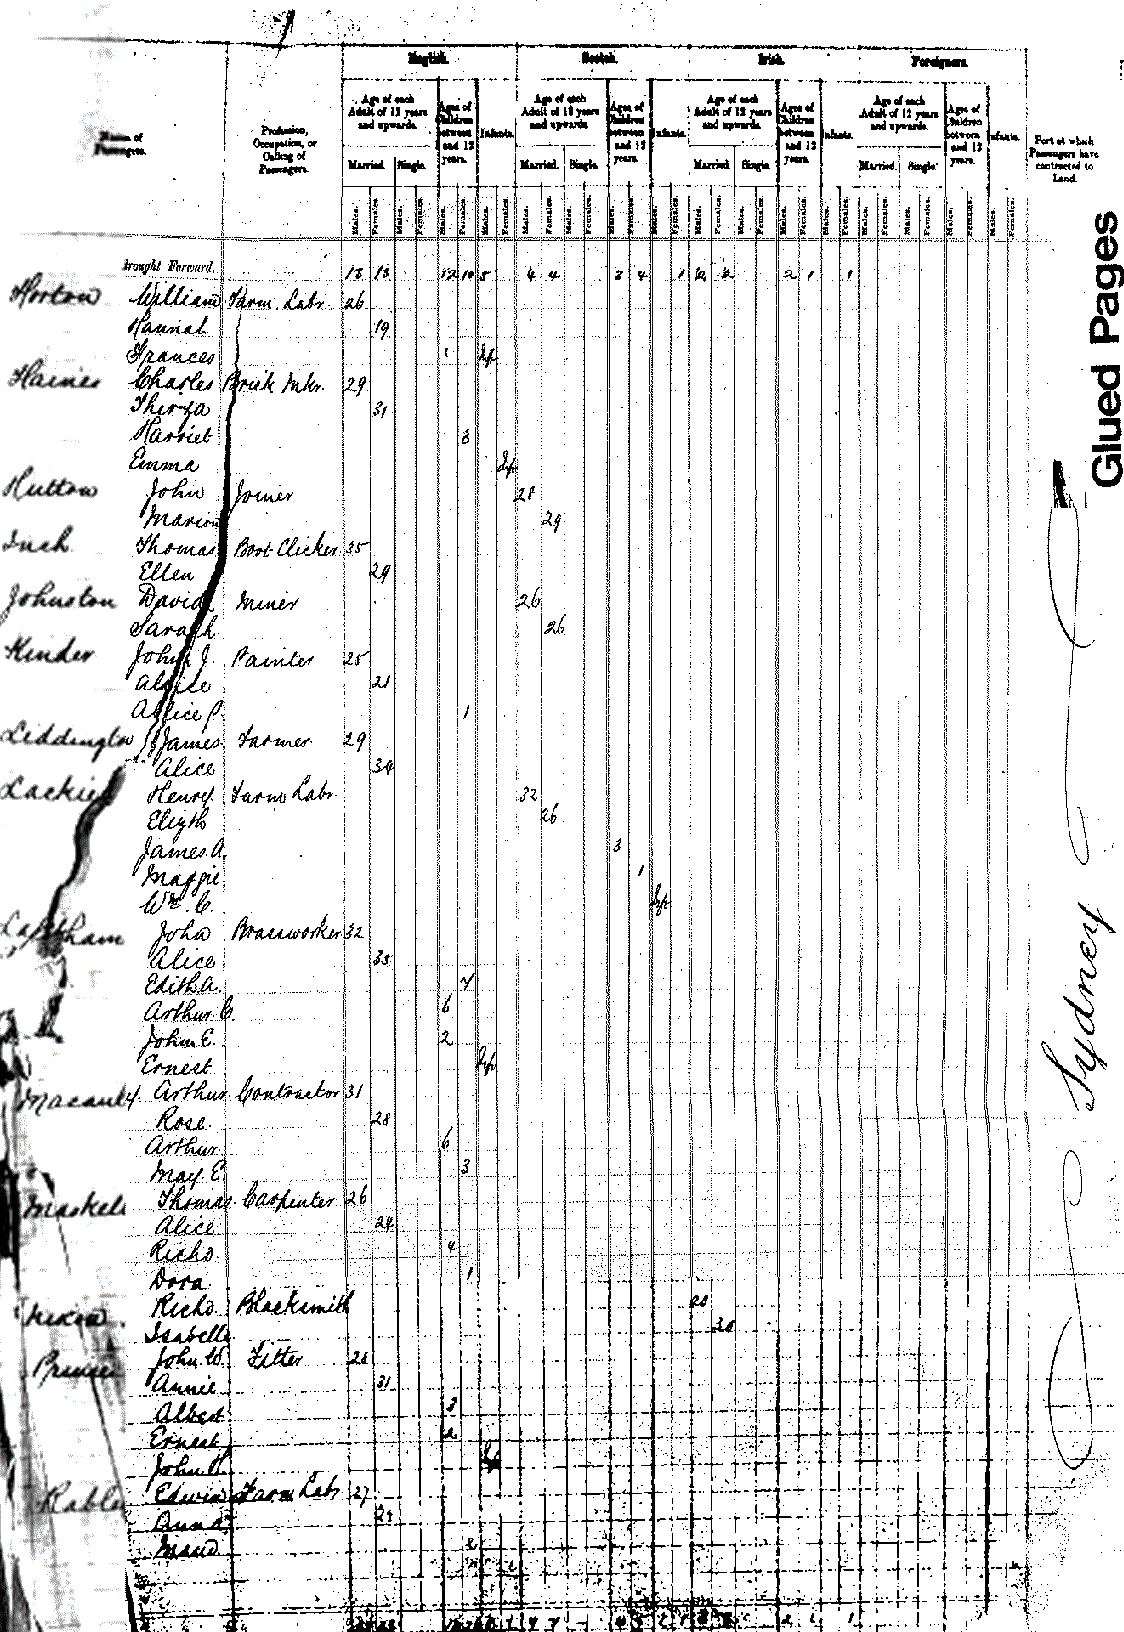 English. Scotch. Irish. Foreigners.
Names of Passengers. Profession, Occupation, or Calling of Passengers. Age of each Adult of 12 years and upwards. Ages of Children between and 12 years. Infants. Age of each Adult of 12 years and upwards. Ages of Children between and 12 years. Infants. Age of each Adult of 12 years and upwards. Ages of Children between and 12 years. Infants. Age of each Adult of 12 years and upwards. Ages of Children between and 12 years. Infants. Port at which Passengers have contracted to Land.
Married. Single. Married. Single. Married. Single. Married. Single.
Males. Females. Males. Females. Males. Females. Males. Females. Males. Females. Males. Females. Males. Females. Males. Females. Males. Females. Males. Females. Males. Females. Males. Females. Males. Females. Males. Females. Males. Females. Males. Females.
Brought Forward. 18 18 12 10 5 4 4 3 4 1 2 2 2 1 1
Horton William Farm Labr 26
Hannah 19
Frances Inf
Haines Charles Brick Mkr. 29
Thirza 31
Harriet 3
Emma Inf
Hutton John Joiner 28
Marion 29
Inch Thomas Boot Clicker 35
Ellen 29
Johnston David Miner 26
Sarah 26
Kinder John J. Painter 25
Alice 21
Alice P. 1
Liddington James Farmer 29
Alice 34
Lackie Henry Farm Labr 32
Elizth 26
James A. 3
Maggie 1
Wm C. Inf
Lapham John Brassworker 32
Alice 33
Edith A. 7
Arthur C. 6
John E. 2
Ernest Inf
Macauly Arthur Contractor 31
Rose 28
Arthur 6
May E. 3
Maskell Thomas Carpenter 26
Alice 24
Richd 4
Dora 1
Richd Blacksmith
Isabella 30
John W. Fitter
Annie 31
Albert 3
Ernest 2
John Inf
Edwin Farm Labr 27
Maud 2
Glued Pages
Sydney